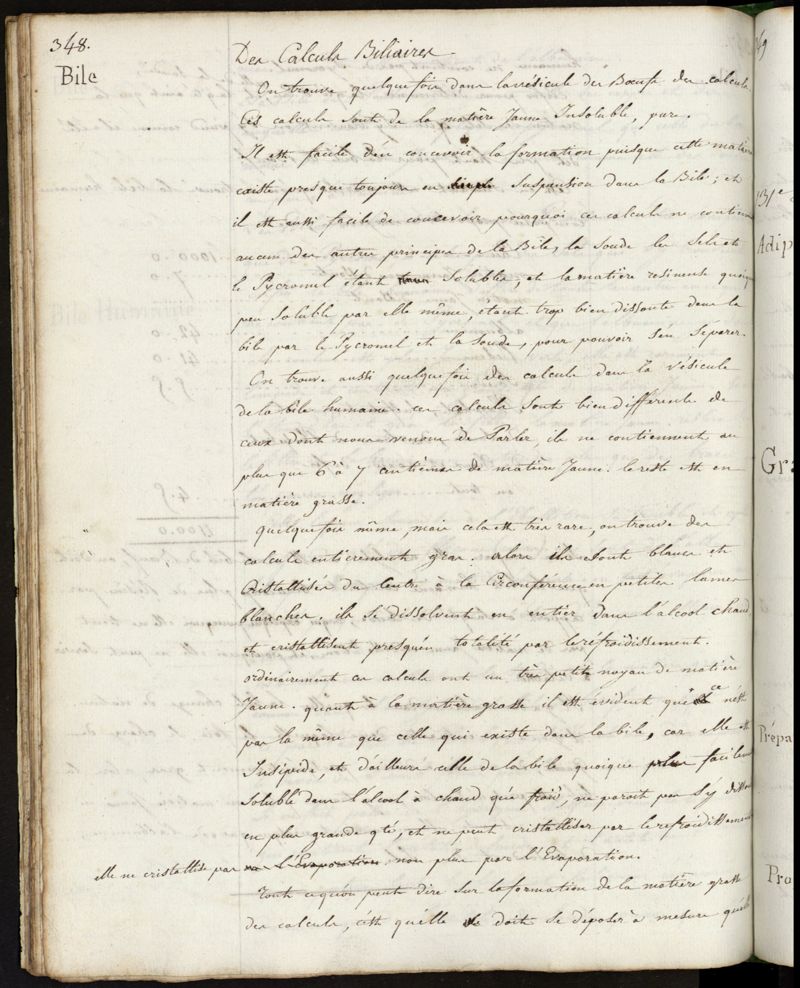 348.
Bile
Des Calculs Biliaires
On trouve quelquefois dans la vésicule des Boeufs des calculs
Ces calculs sont de la matière Jaune Insoluble, pure.
Il est facile d'en concevoir la formation puisque cette matière
existe presque toujours en suspension dans la Bile; et
il est aussi facile de concevoir pourquoi ces calculs ne contiennent
aucun des autres principes de la Bile, la Soude les Sels et
le Pycromel étant Solubles, et la matière resineuse quoique
peu Soluble par elle même, étant trop bien dissoute dans la
bile par le Pycromel et la Soude, pour pouvoir s'en Séparer.
On trouve aussi quelquefois des calculs dans la vésicule
de la bile humaine. ces calculs sont bien différents de
ceux dont nous venons de Parler, ils ne contiennent au
plus que 6 à 7 centièmes de matière Jaune. le reste est en
matière grasse.
Quelquefois même, mais cela est très rare, on trouve des
calculs entièrement gras. alors ils sont blancs et
Cristallisés du Centre à la Circonférence en petites lames
blanches. ils se dissolvent en entier dans l'alcool chaud
et cristallisent presqu'en totalité par le réfroidissement.
ordinairement ces calculs ont un très petit noyau de matière
Jaune. quant à la matière grasse il est évident que ce n'est
pas la même que celle qui existe dans la bile, car elle est
Insipide, et d'ailleurs celle de la bile quoique plus facilement
soluble dans l'alcool à chaud qu'à froid, ne paroit pas s'y dissoudre
en plus grande qté, et ne peut cristalliser par le refroidissement
elle ne cristallise pas non plus par l'Evaporation.
Tout ce qu'on peut dire sur la formation de la matière grasse
des calculs, c'est qu'elle doit se déposer à mesure qu'elle
69
Adip
Gra
Prépa
Pro